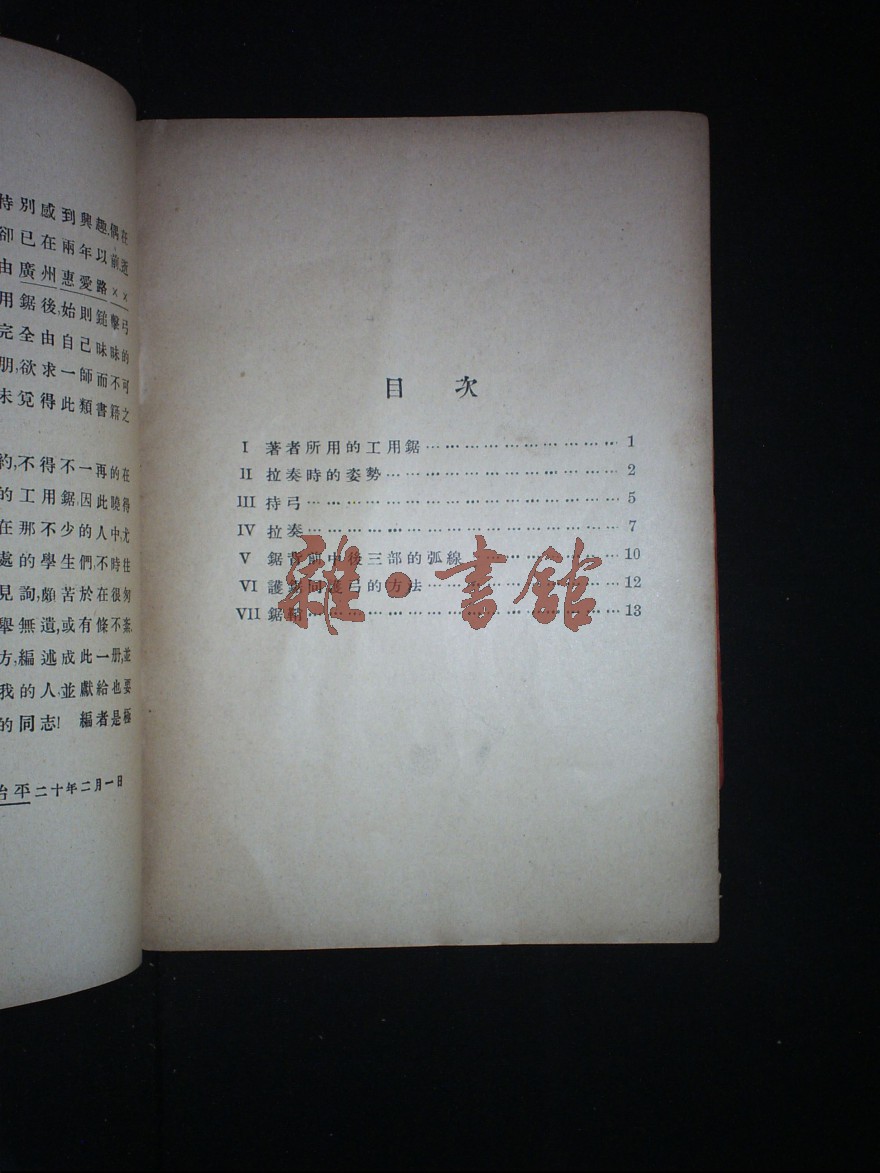 特別感到興趣,偶在
卻已在兩年以前逝
由廣州惠愛路××
用鋸後,始則鎚擊弓
完全由自己味味的
朋,欲求一師而不可
未覓得此類書籍之
約,不得不一再的在
的工用鋸,因此曉得
在那不少的人中,尤
處的學生們,不時住
見詢,頗苦於在很匆
舉無遺,或有條不紊,
方,編述成此一册,並
我的人,並獻給也要
的同志! 編者是極
治平二十年二月一日
目 次
I 著者所用的工用鋸 1
II 拉奏時的姿勢 2
III 持弓 5
IV 拉奏 7
V 鋸背前中後三部的弧線 10
VI 護鋸同護弓的方法 12
VII 鋸 13
雅·書館